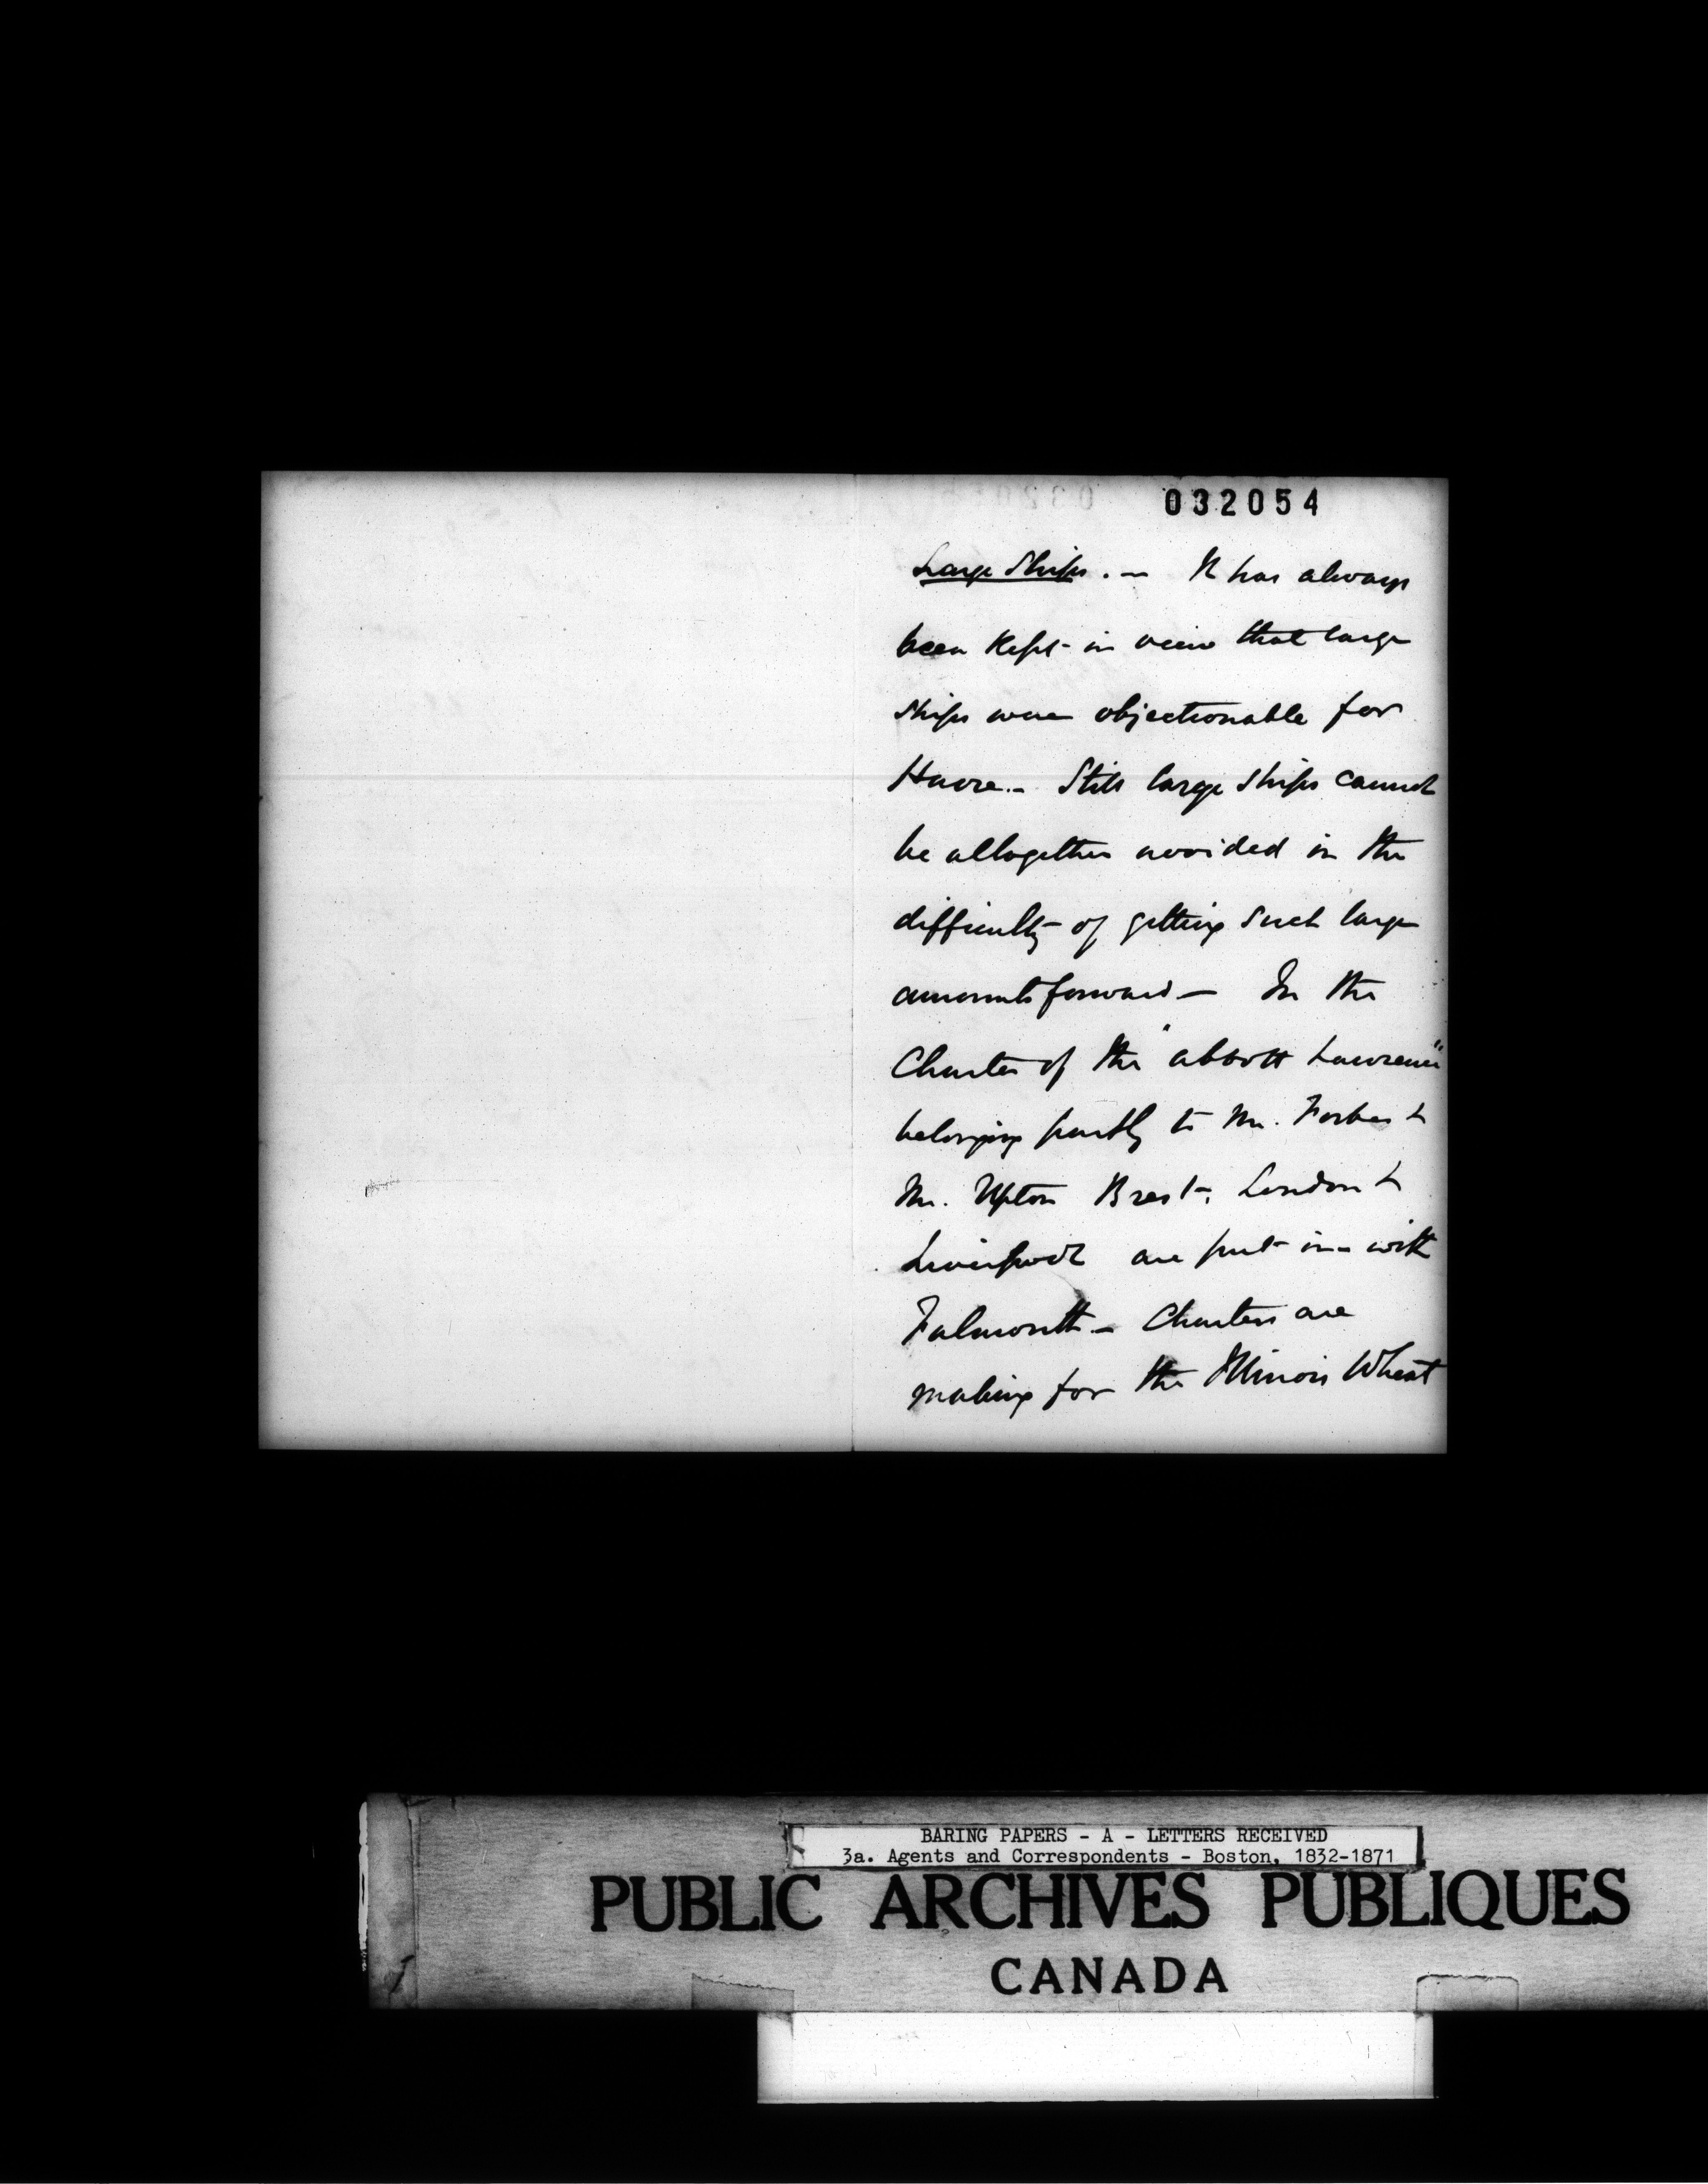 032054
Large Ships. — It has always
been kept in view that large
ships were objectionable for
Havre. — Still large ships cannot
be altogether avoided in the
difficulty of getting such large
amounts forward — In the
Charter of the "Abbott Lawrence"
belonging partly to Mr. Forbes &
Mr. Upton Brest, London &
Liverpool are put in — with
Falmouth — Charters are
making for the Illinois Wheat
BARING PAPERS - A - LETTERS RECEIVED
3a. Agents and Correspondents - Boston, 1832-1871
PUBLIC ARCHIVES PUBLIQUES
CANADA